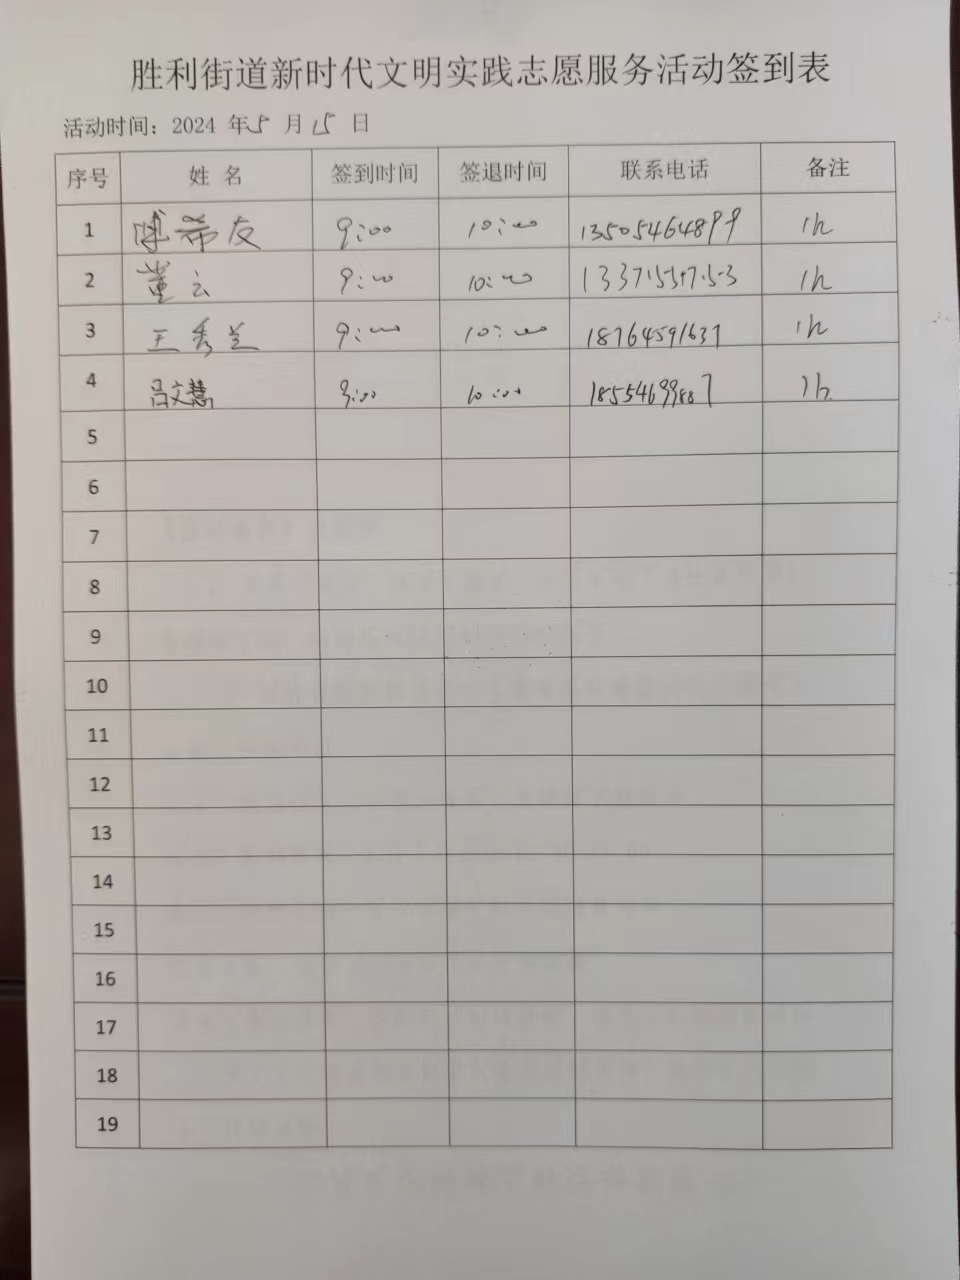 胜利街道新时代文明实践志愿服务活动签到表
活动时间：2024 年 5 月 15 日
序号 姓 名 签到时间 签退时间 联系电话 备注
1 陈希友 9:00 10:00 13505464899 1h
2 董云 9:00 10:00 1h
3 王秀兰 9:00 10:00 18764591637 1h
4 吕文慧 9:00 10:00 18554699887 1h
5
6
7
8
9
10
11
12
13
14
15
16
17
18
19